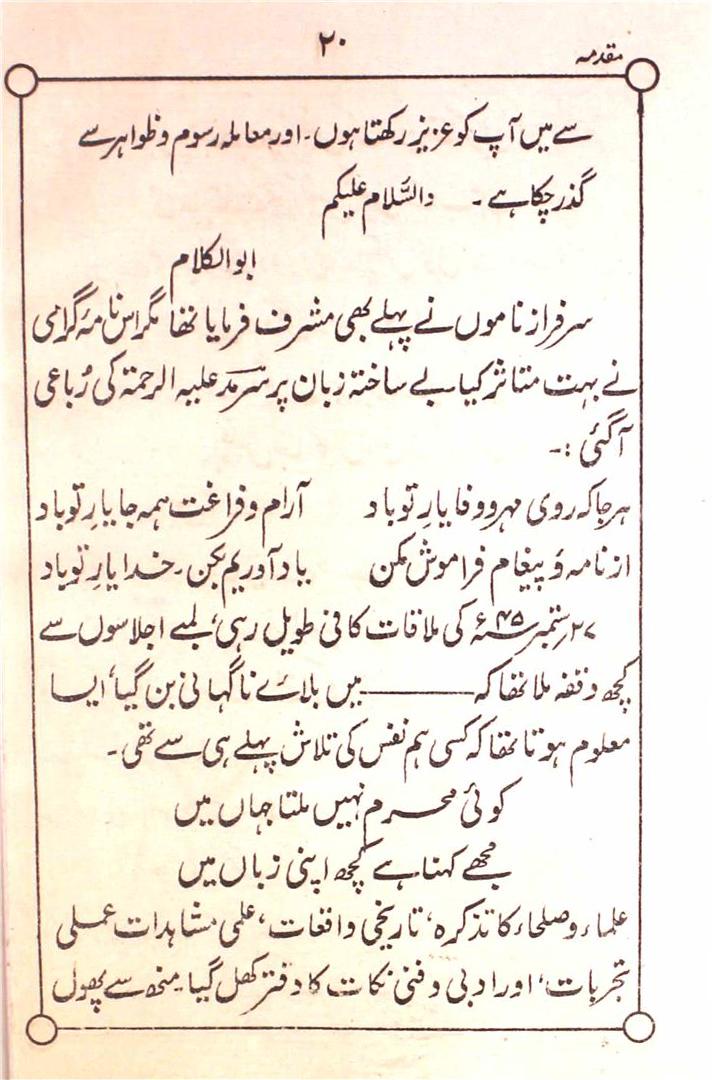 مقدمہ
۲۰
سے میں آپ کو عزیز رکھتا ہوں۔ اور معاملہ رسوم و ظواہر سے
گذر چکا ہے۔ والسَّلام علیکم
ابوالکلام
سرفراز ناموں نے پہلے بھی مشرف فرمایا تھا مگر اس نامۂ گرامی
نے بہت متاثر کیا بے ساختہ زبان پر سرمد علیہ الرحمۃ کی رُباعی
آگئی :۔
ہر جا کہ روی مہر و وفا یارِ تو باد آرام و فراغت ہمہ جا یارِ تو باد
از نامہ و پیغام فراموش مکن یاد آوریم بکن۔ خدا یارِ تو باد
۲۷ ستمبر ۴۵ء کی ملاقات کافی طویل رہی، لمبے اجلاسوں سے
کچھ وقفہ ملا تھا کہ ——— میں بلائے ناگہانی بن گیا، ایسا
معلوم ہوتا تھا کہ کسی ہم نفس کی تلاش پہلے ہی سے تھی۔
کوئی محرم نہیں ملتا جہاں میں
مجھے کہنا ہے کچھ اپنی زباں میں
علماء و صلحاء کا تذکرہ، تاریخی واقعات، علمی مشاہدات عملی
تجربات، اور ادبی و فنی نکات کا دفتر کھل گیا۔ منھ سے پھول